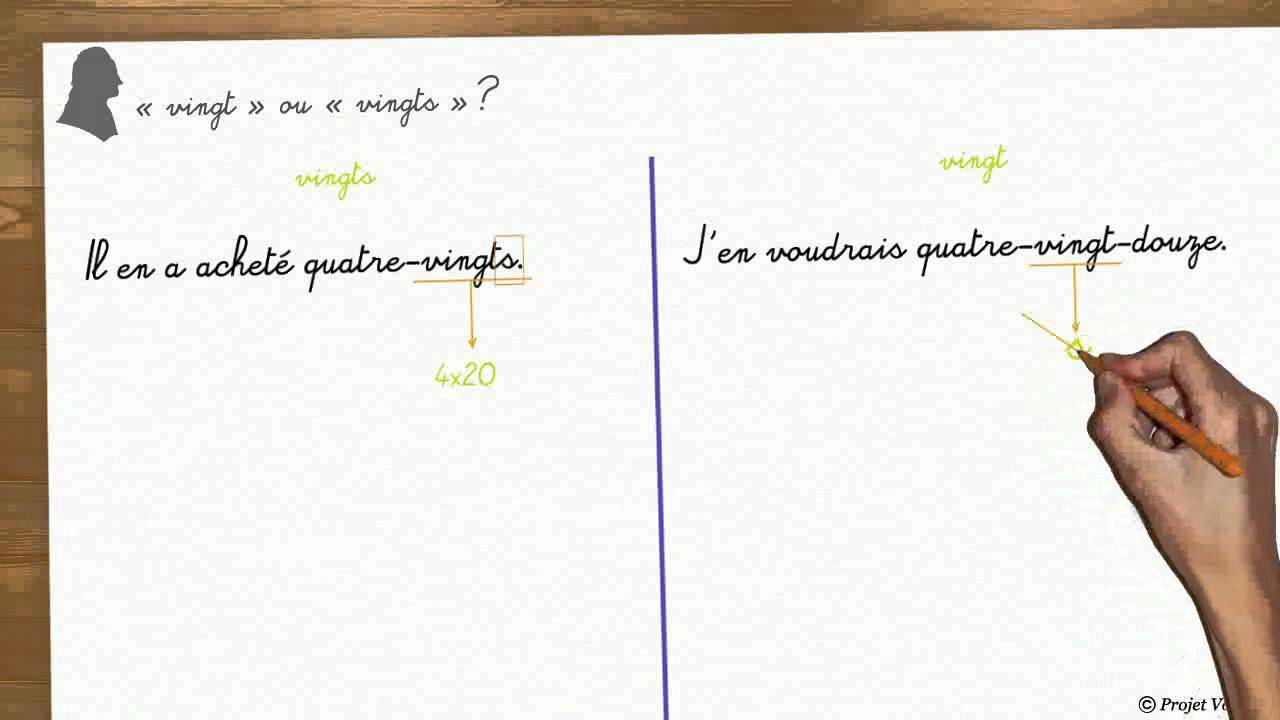 « vingt » ou « vingts » ?
vingts
Il en a acheté quatre-vingts.
4x20
vingt
J'en voudrais quatre-vingt-douze.
© Projet